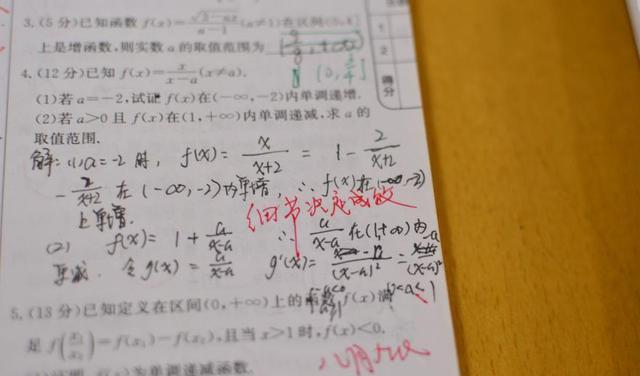 3. (5分)已知函数 f(x)=√(3-ax)/(a-1) (a≠1)在区间(0,4]
上是增函数,则实数 a 的取值范围为
4. (12分)已知 f(x)=x/(x-a)(x≠a).
(1)若 a=-2,试证 f(x)在(-∞,-2)内单调递增.
(2)若 a>0 且 f(x)在(1,+∞)内单调递减,求 a 的
取值范围.
解:(1)a=-2 时, f(x)= x/(x+2) = 1- 2/(x+2)
- 2/(x+2) 在 (-∞,-2)内单增, ∴ f(x)在(-∞,-2)
上单增.
细节决定成败
(2) f(x)= 1+ a/(x-a) ∵ a/(x-a) 在(1,+∞)内
单减. 令 g(x)= a/(x-a) g'(x)=
5. (13分)已知定义在区间(0,+∞)上的函数 f(x)满
是 f(x₁/x₂)=f(x₁)-f(x₂),且当 x>1 时, f(x)<0.
f(x)为单调递减函数.
1
2
得
分